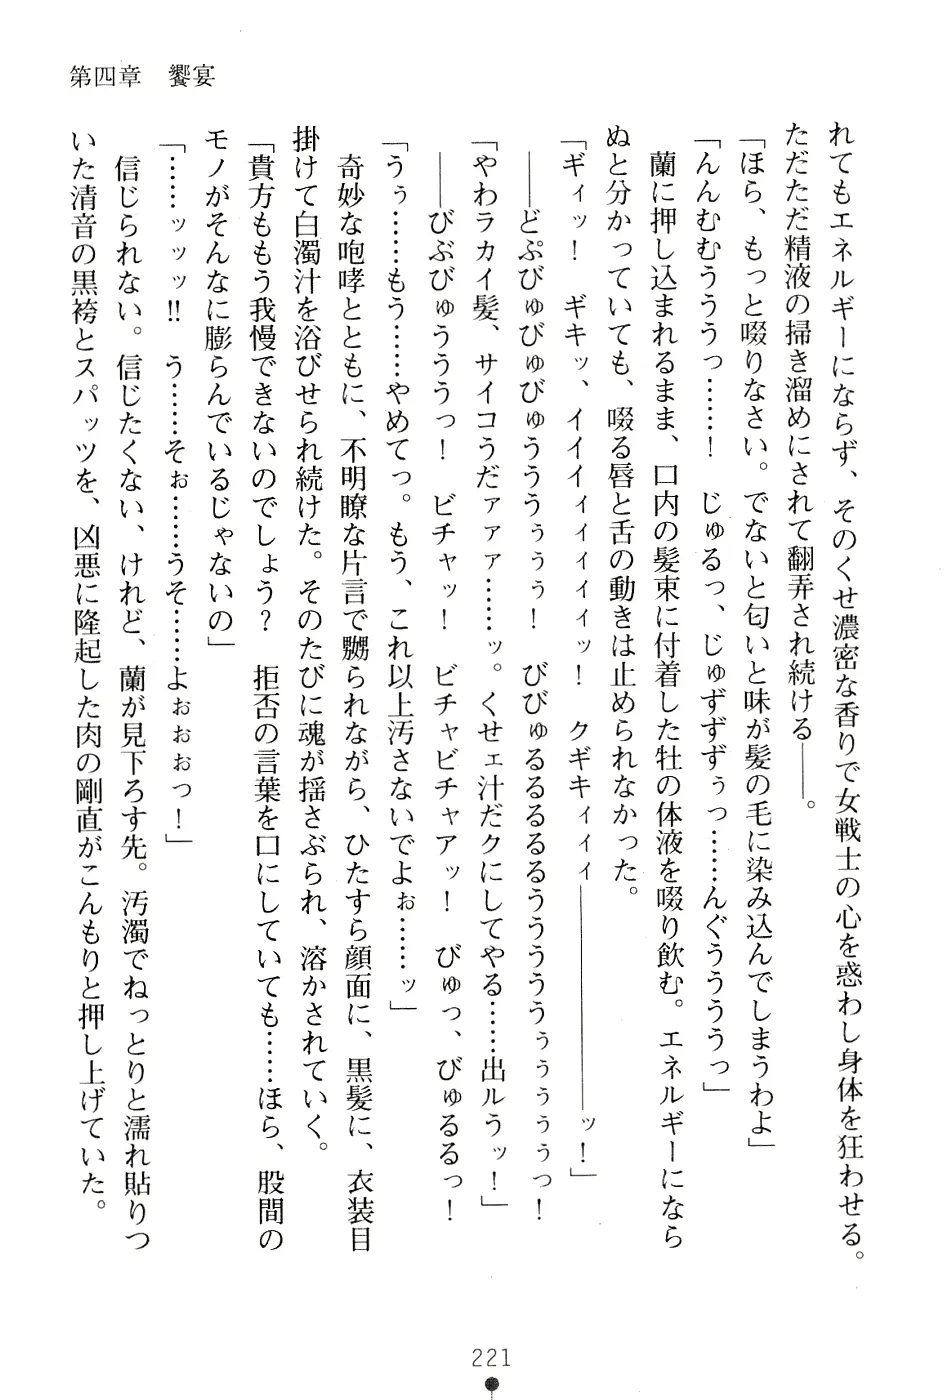 第四章　饗宴
れてもエネルギーにならず、そのくせ濃密な香りで女戦士の心を惑わし身体を狂わせる。
ただただ精液の掃き溜めにされて翻弄され続ける――。
「ほら、もっと啜りなさい。でないと匂いと味が髪の毛に染み込んでしまうわよ」
「んんむむうううっ……！　じゅるっ、じゅずずずぅっ……んぐうううっ」
　蘭に押し込まれるまま、口内の髪束に付着した牡の体液を啜り飲む。エネルギーになら
ぬと分かっていても、啜る唇と舌の動きは止められなかった。
「ギィッ！　ギキッ、イイイィィィィィッ！　クギキィィィ――――――――ッ！」
　――どぷびゅびゅびゅうううぅぅぅ！　びびゅるるるるるうううううぅぅぅぅぅっ！
「やわラカイ髪、サイコうだァァァ……ッ。くせェ汁だクにしてやる……出ルうッ！」
　――びぶびゅうううっ！　ビチャッ！　ビチャビチャアッ！　びゅっ、びゅるるっ！
「うぅ……もう……やめてっ。もう、これ以上汚さないでよぉ……ッ」
　奇妙な咆哮とともに、不明瞭な片言で嬲られながら、ひたすら顔面に、黒髪に、衣装目
掛けて白濁汁を浴びせられ続けた。そのたびに魂が揺さぶられ、溶かされていく。
「貴方ももう我慢できないのでしょう？　拒否の言葉を口にしていても……ほら、股間の
モノがそんなに膨らんでいるじゃないの」
「……ッッッ!!　う……そぉ……うそ……よぉぉぉっ！」
　信じられない。信じたくない、けれど、蘭が見下ろす先。汚濁でねっとりと濡れ貼りつ
いた清音の黒袴とスパッツを、凶悪に隆起した肉の剛直がこんもりと押し上げていた。
221